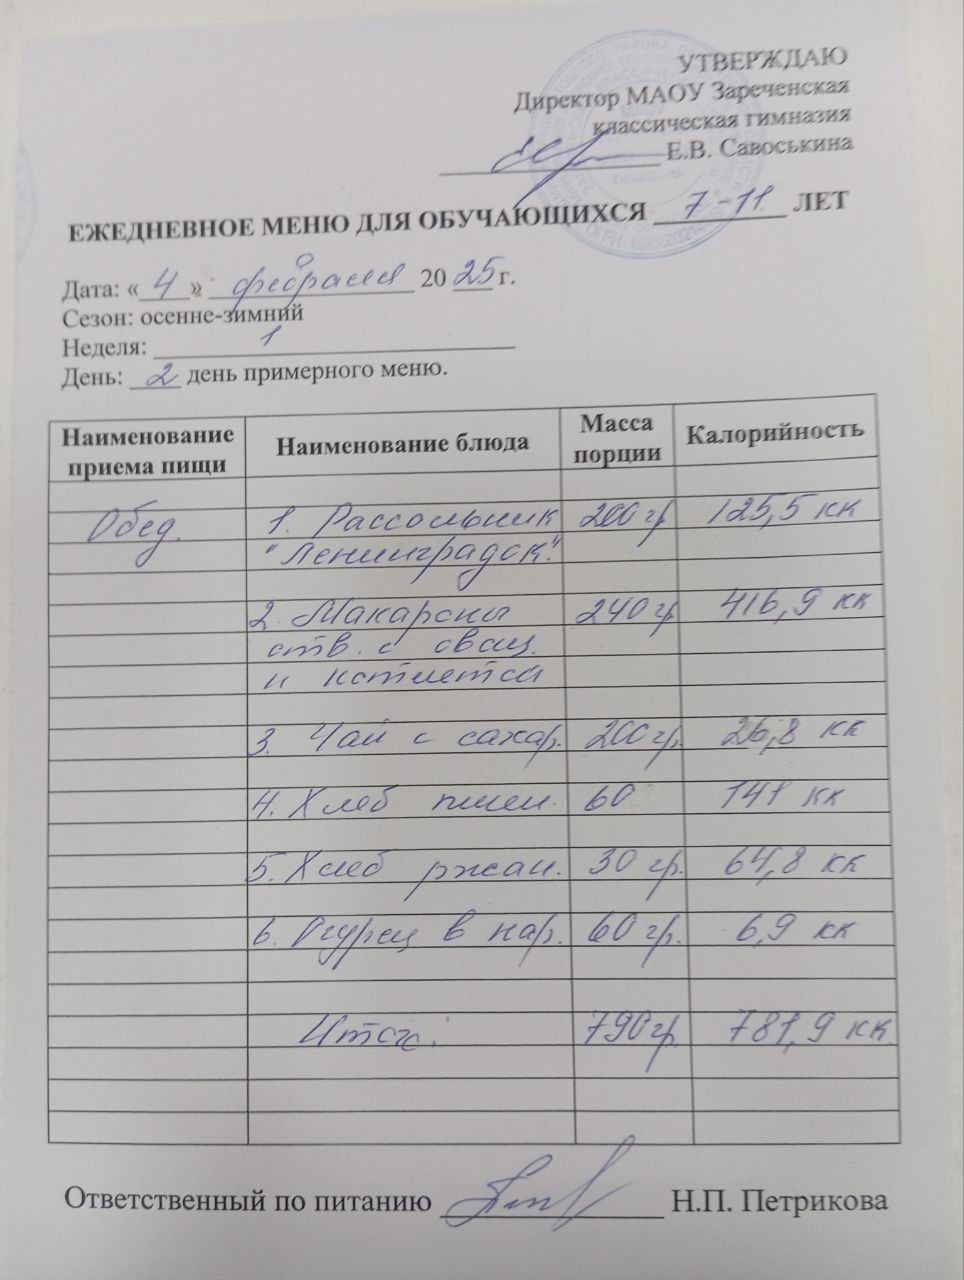 УТВЕРЖДАЮ
Директор МАОУ Зареченская
классическая гимназия
Е.В. Савоськина
ЕЖЕДНЕВНОЕ МЕНЮ ДЛЯ ОБУЧАЮЩИХСЯ 7-11 ЛЕТ
Дата: «4» февраля 2025 г.
Сезон: осенне-зимний
Неделя: 1
День: 2 день примерного меню.
Наименование приема пищи Наименование блюда Масса порции Калорийность
Обед. 1. Рассольник 200 гр 125,5 кк
"Ленинградск."
2. Макароны 240 гр 416,9 кк
отв. с овощ.
и котлетой
3. Чай с сахар. 200 гр. 26,8 кк
4. Хлеб пшен. 60 141 кк
5. Хлеб ржан. 30 гр. 64,8 кк
6. Огурец в нар. 60 гр. 6,9 кк
Итого: 790 гр. 781,9 кк
Ответственный по питанию Н.П. Петрикова